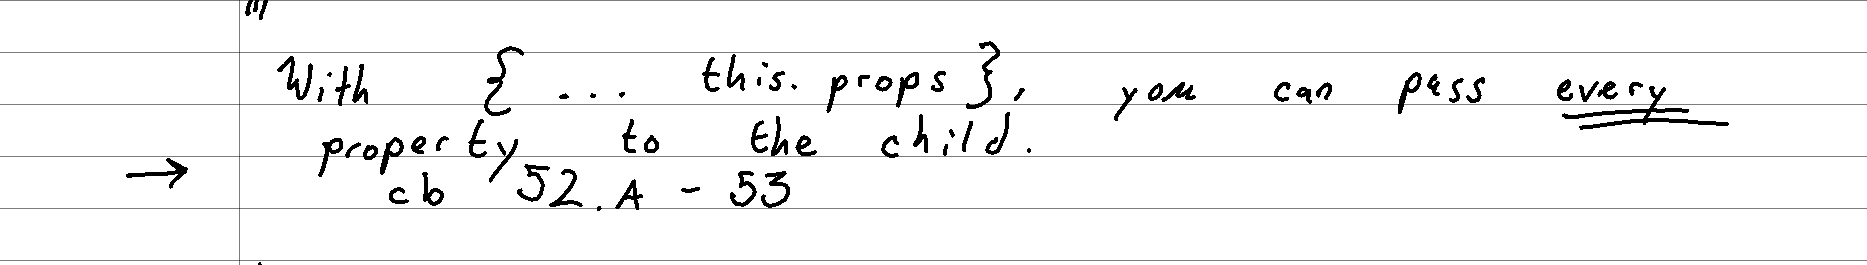 With {... this.props}, you can pass every
property to the child.
→ cb 52.A - 53